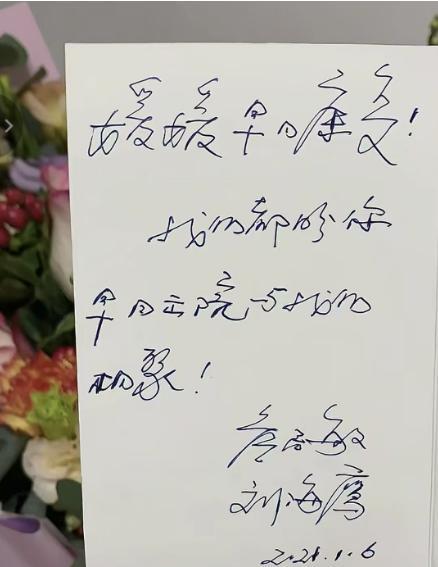 媛媛早日康复！
我们都盼你
早日出院与我们
相聚！
詹国敏
刘海鹰
2021.1.6